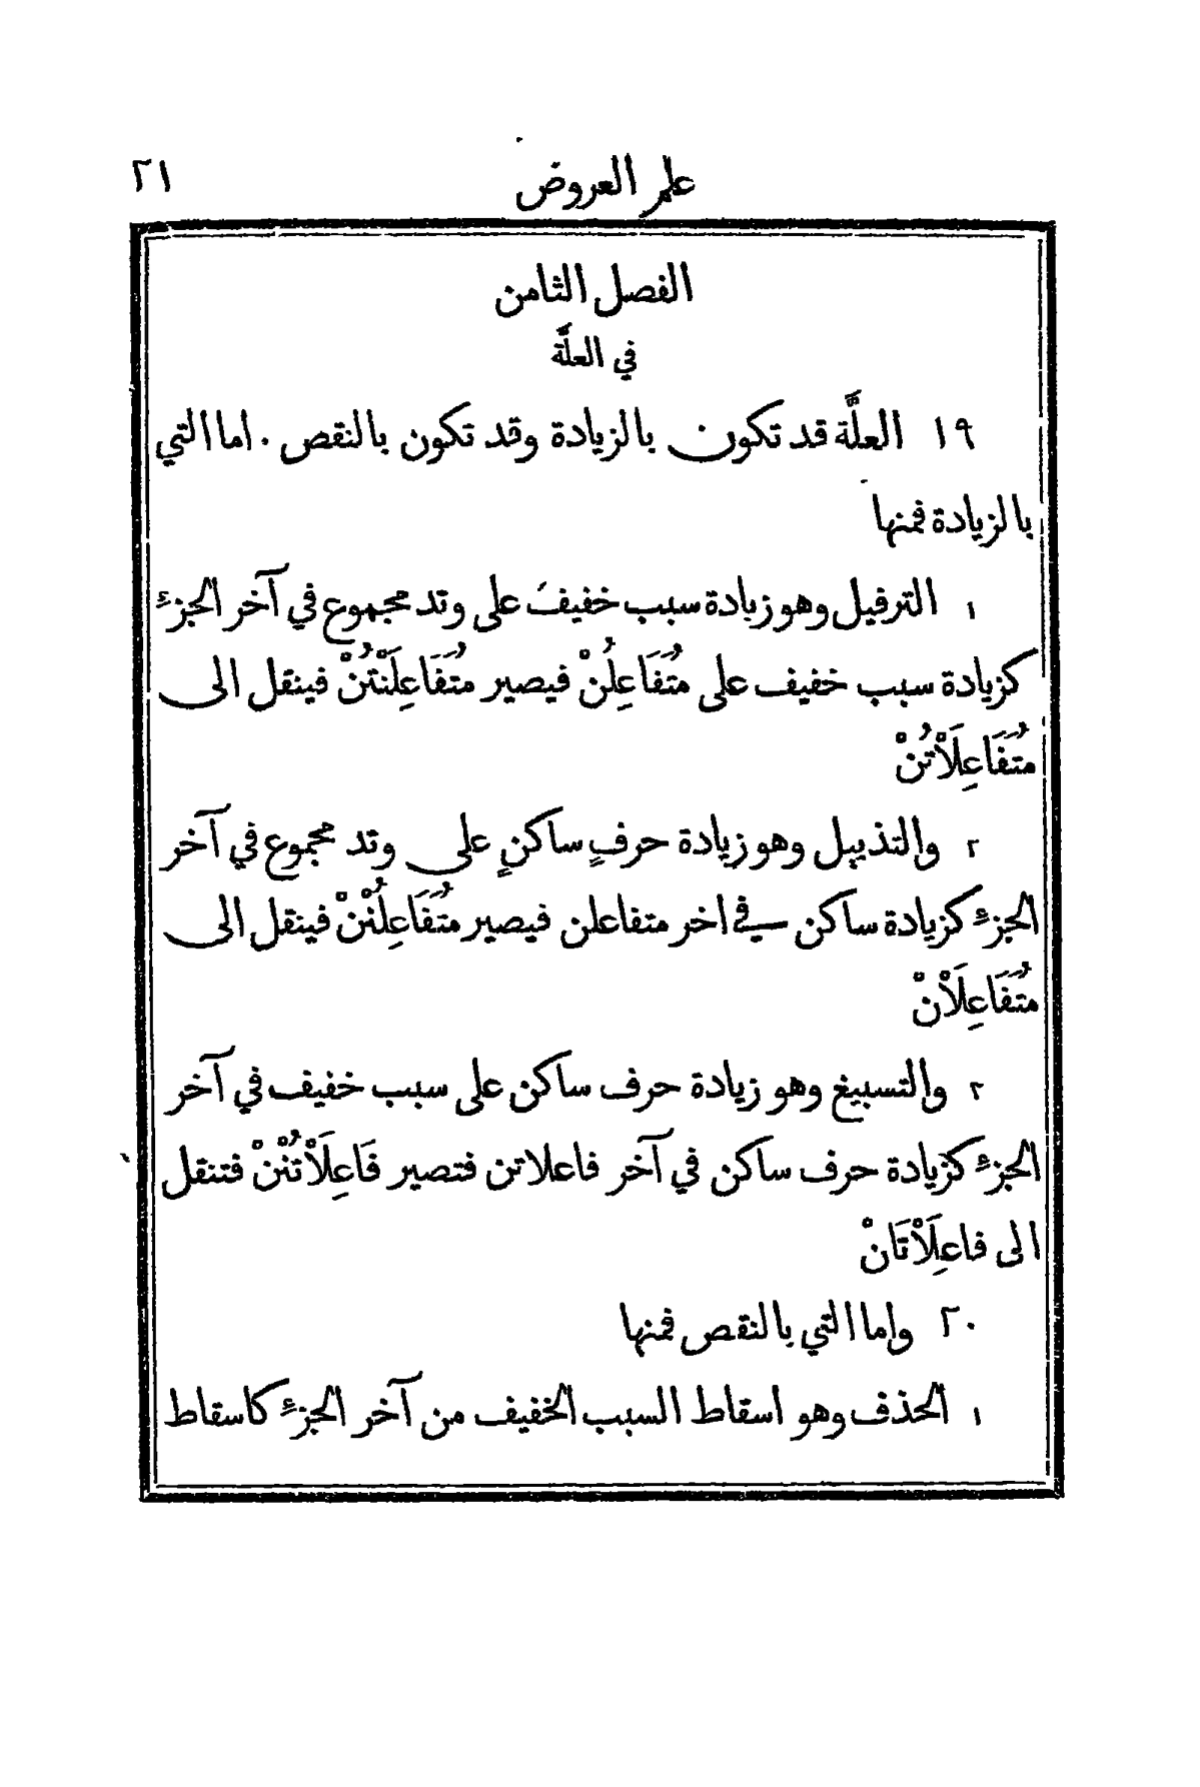 علم العروض ٢١
الفصل الثامن
في العلَّة
١٩ العلَّة قد تكون بالزيادة وقد تكون بالنقص . اما التي
بالزيادة فمنها
١ الترفيل وهو زيادة سبب خفيف على وتد مجموع في آخر الجزءِ
كزيادة سبب خفيف على مُتَفَاعِلُنْ فيصير مُتَفَاعِلَنْتُنْ فينقل الى
مُتَفَاعِلَاْتُنْ
٢ والتذييل وهو زيادة حرفٍ ساكنٍ على وتد مجموع في آخر
الجزءِ كزيادة ساكن في اخر متفاعلن فيصير مُتَفَاعِلُنْنْ فينقل الى
مُتَفَاعِلَاْنْ
٣ والتسبيغ وهو زيادة حرف ساكن على سبب خفيف في آخر
الجزءِ كزيادة حرف ساكن في آخر فاعلاتن فتصير فَاعِلَاْتُنْنْ فتنقل
الى فاعِلَاْتَانْ
٢٠ واما التي بالنقص فمنها
١ الحذف وهو اسقاط السبب الخفيف من آخر الجزءِ كاسقاط